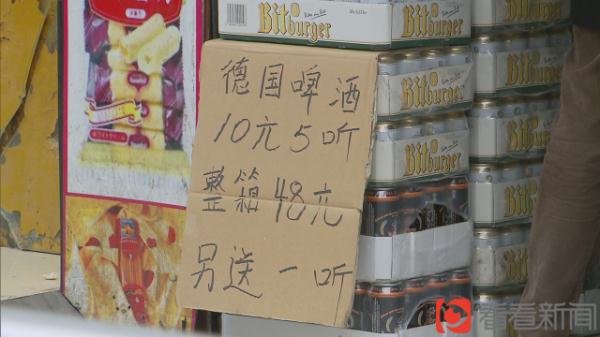 德国啤酒
10元5听
整箱48元
另送一听
Bitburger
Bitburger
Bitburger
Bitburger
Bitburger
Bitburger
看看新闻